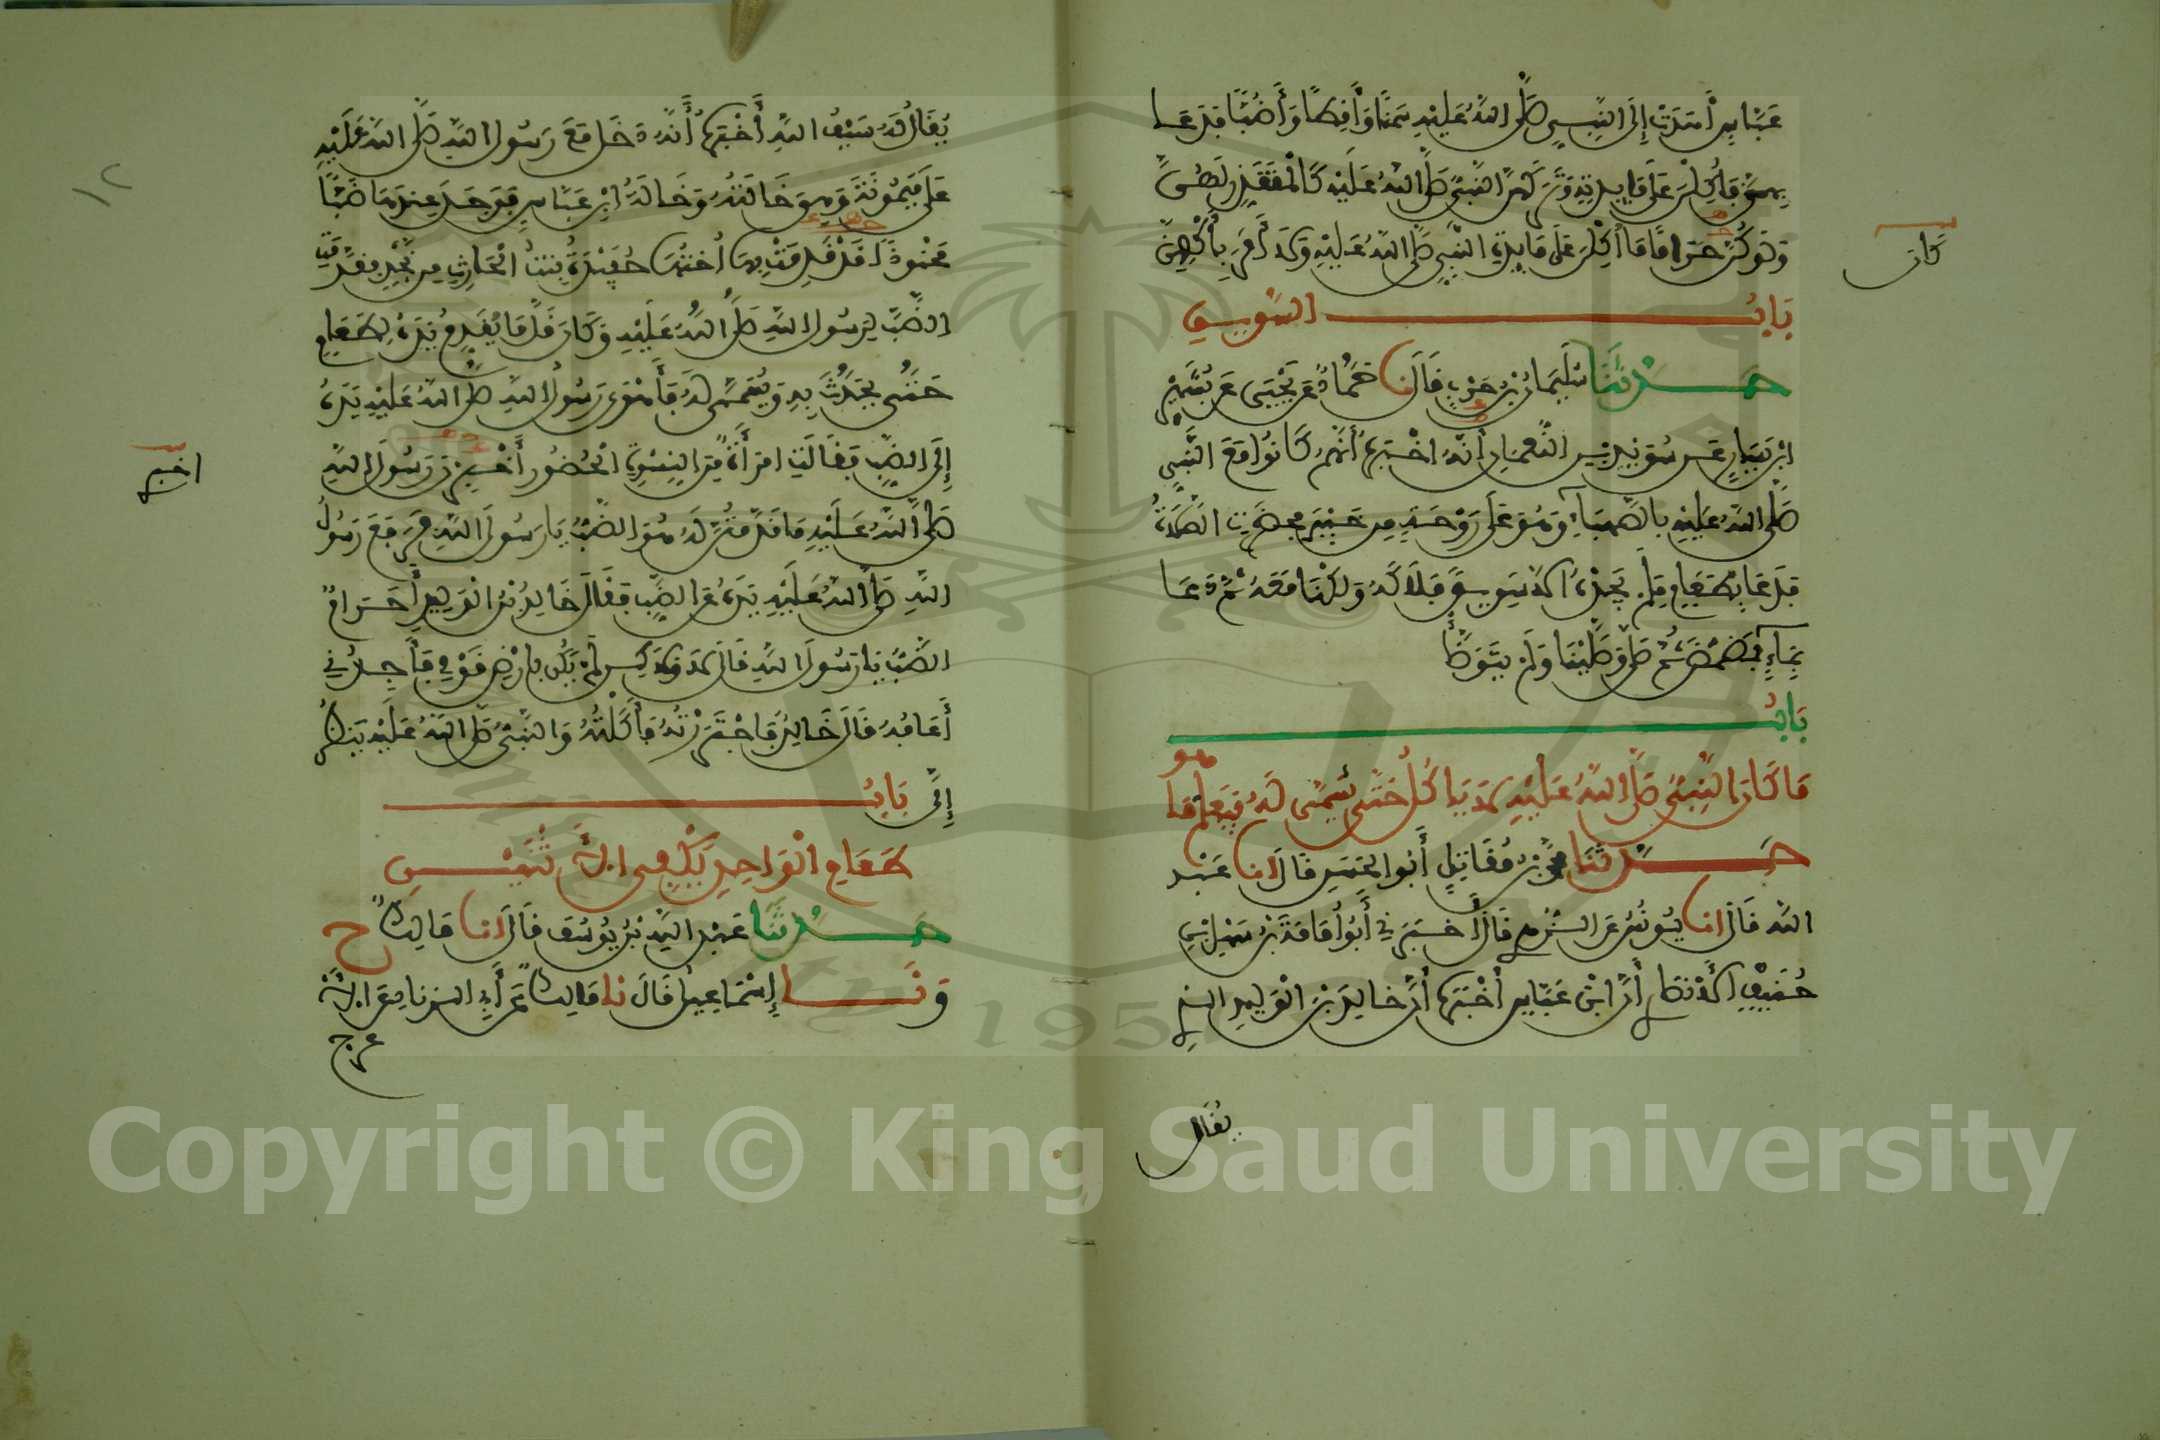 عَبَّاسٍ أَهْدَتْ إِلَى النَّبِيِّ صَلَّى اللَّهُ عَلَيْهِ سَمْنًا وَأَقِطًا وَأَضُبًّا فَدَعَا
بِهِنَّ فَأُكِلْنَ عَلَى مَائِدَتِهِ وَتَرَكَهُنَّ النَّبِيُّ صَلَّى اللَّهُ عَلَيْهِ كَالْمُتَقَذِّرِ لَهُنَّ
وَلَوْ كُنَّ حَرَامًا مَا أُكِلْنَ عَلَى مَائِدَةِ النَّبِيِّ صَلَّى اللَّهُ عَلَيْهِ وَلَا أَمَرَ بِأَكْلِهِنَّ
كان
بَابُ السَّوِيقِ
حَدَّثَنَا سُلَيْمَانُ بْنُ حَرْبٍ قَالَ نا حَمَّادٌ عَنْ يَحْيَى عَنْ بُشَيْرِ
ابْنِ يَسَارٍ عَنْ سُوَيْدِ بْنِ النُّعْمَانِ أَنَّهُ أَخْبَرَهُ أَنَّهُمْ كَانُوا مَعَ النَّبِيِّ
صَلَّى اللَّهُ عَلَيْهِ بِالصَّهْبَاءِ وَهُوَ عَلَى رَوْحَةٍ مِنْ خَيْبَرَ فَحَضَرَتِ الصَّلَاةُ
فَدَعَا بِطَعَامٍ فَلَمْ يَجِدْهُ إِلَّا سَوِيقًا فَلَاكَهُ وَلُكْنَا مَعَهُ ثُمَّ دَعَا
بِمَاءٍ فَمَضْمَضَ ثُمَّ صَلَّى وَصَلَّيْنَا وَلَمْ يَتَوَضَّأْ
بَابُ
مَا كَانَ النَّبِيُّ صَلَّى اللَّهُ عَلَيْهِ لَا يَأْكُلُ حَتَّى يُسَمَّى لَهُ فَيَعْلَمَ مَا هو
حَدَّثَنَا مُحَمَّدُ بْنُ مُقَاتِلٍ أَبُو الْحَسَنِ قَالَ انا عَبْدُ
اللَّهِ قَالَ انا يُونُسُ عَنِ الزُّهْرِيِّ قَالَ أَخْبَرَنِي أَبُو أُمَامَةَ بْنُ سَهْلِ بْنِ
حُنَيْفٍ الْأَنْصَارِيُّ أَنَّ ابْنَ عَبَّاسٍ أَخْبَرَهُ أَنَّ خَالِدَ بْنَ الْوَلِيدِ الَّذِي
يُقَالُ
١٢
يُقَالُ لَهُ سَيْفُ اللَّهِ أَخْبَرَهُ أَنَّهُ دَخَلَ مَعَ رَسُولِ اللَّهِ صَلَّى اللَّهُ عَلَيْهِ
عَلَى مَيْمُونَةَ وَهِيَ خَالَتُهُ وَخَالَةُ ابْنِ عَبَّاسٍ فَوَجَدَ عِنْدَهَا ضَبًّا
مَحْنُوذًا قَدْ قَدِمَتْ بِهِ أُخْتُهَا حُفَيْدَةُ بِنْتُ الْحَارِثِ مِنْ نَجْدٍ فَقَدَّمَتِ
الضَّبَّ لِرَسُولِ اللَّهِ صَلَّى اللَّهُ عَلَيْهِ وَكَانَ قَلَّمَا يُقَدِّمُ يَدَهُ لِطَعَامٍ
حَتَّى يُحَدَّثَ بِهِ وَيُسَمَّى لَهُ فَأَهْوَى رَسُولُ اللَّهِ صَلَّى اللَّهُ عَلَيْهِ يَدَهُ
إِلَى الضَّبِّ فَقَالَتِ امْرَأَةٌ مِنَ النِّسْوَةِ الْحُضُورِ أَخْبِرْنَ رَسُولَ اللَّهِ
صَلَّى اللَّهُ عَلَيْهِ مَا قَدَّمْتُنَّ لَهُ هُوَ الضَّبُّ يَا رَسُولَ اللَّهِ فَرَفَعَ رَسُولُ
اللَّهِ صَلَّى اللَّهُ عَلَيْهِ يَدَهُ عَنِ الضَّبِّ فَقَالَ خَالِدُ بْنُ الْوَلِيدِ أَحَرَامٌ
الضَّبُّ يَا رَسُولَ اللَّهِ قَالَ لَا وَلَكِنْ لَمْ يَكُنْ بِأَرْضِ قَوْمِي فَأَجِدُنِي
أَعَافُهُ قَالَ خَالِدٌ فَاجْتَرَرْتُهُ فَأَكَلْتُهُ وَالنَّبِيُّ صَلَّى اللَّهُ عَلَيْهِ يَنْظُرُ
إِلَيَّ بَابُ
طَعَامِ الْوَاحِدِ يَكْفِي الِاثْنَيْنِ
حَدَّثَنَا عَبْدُ اللَّهِ بْنُ يُوسُفَ قَالَ انا مَالِكٌ ح
وَنَا إِسْمَاعِيلُ قَالَ نا مَالِكٌ عَنْ أَبِي الزِّنَادِ عَنِ الْأَ
عْرَجِ
Copyright © King Saud University
1957